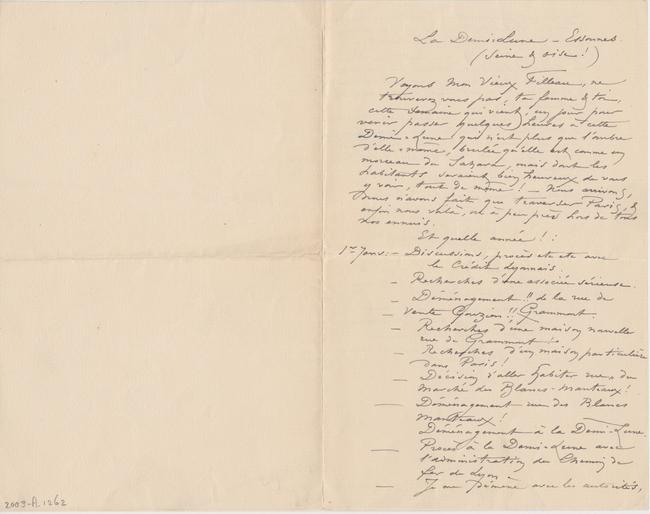 La Demi-Lune - Essonnes
(Seine & oise!)
Voyons mon vieux Filleau, ne
trouverez vous pas, ta femme & toi,
cette semaine qui vient, un jour pour
venir passer quelques heures à cette
Demi-Lune qui n'est plus que l'ombre
d'elle-même, brulée qu'elle est comme un
morceau du Sahara, mais dont les
habitants seraient bien heureux de vous
y voir, tout de même! - Nous arrivons,
nous n'avons fait que traverser Paris, &
enfin nous voilà, ou à peu près hors de tous
nos ennuis.
Et quelle année!:
1er Janv: - Discussions, procès etc etc avec
le Crédit Lyonnais.
- Recherches d'une associée sérieuse.
- Déménagement!! de la rue de
- Vente Gouzien!! Grammont.
- Recherches d'une maison nouvelle
rue de Grammont!
- Recherches d'un maison particulière
dans Paris!
- Décision d'aller habiter rue du
Marché des Blancs-Manteaux!
- Déménagement rue des Blancs
Manteaux!
Déménagement à la Demi-Lune.
- Procès à la Demi-Lune avec
l'administration du Chemin de
fer de Lyon
- Je me démène avec les autorités,
2009-A.1262